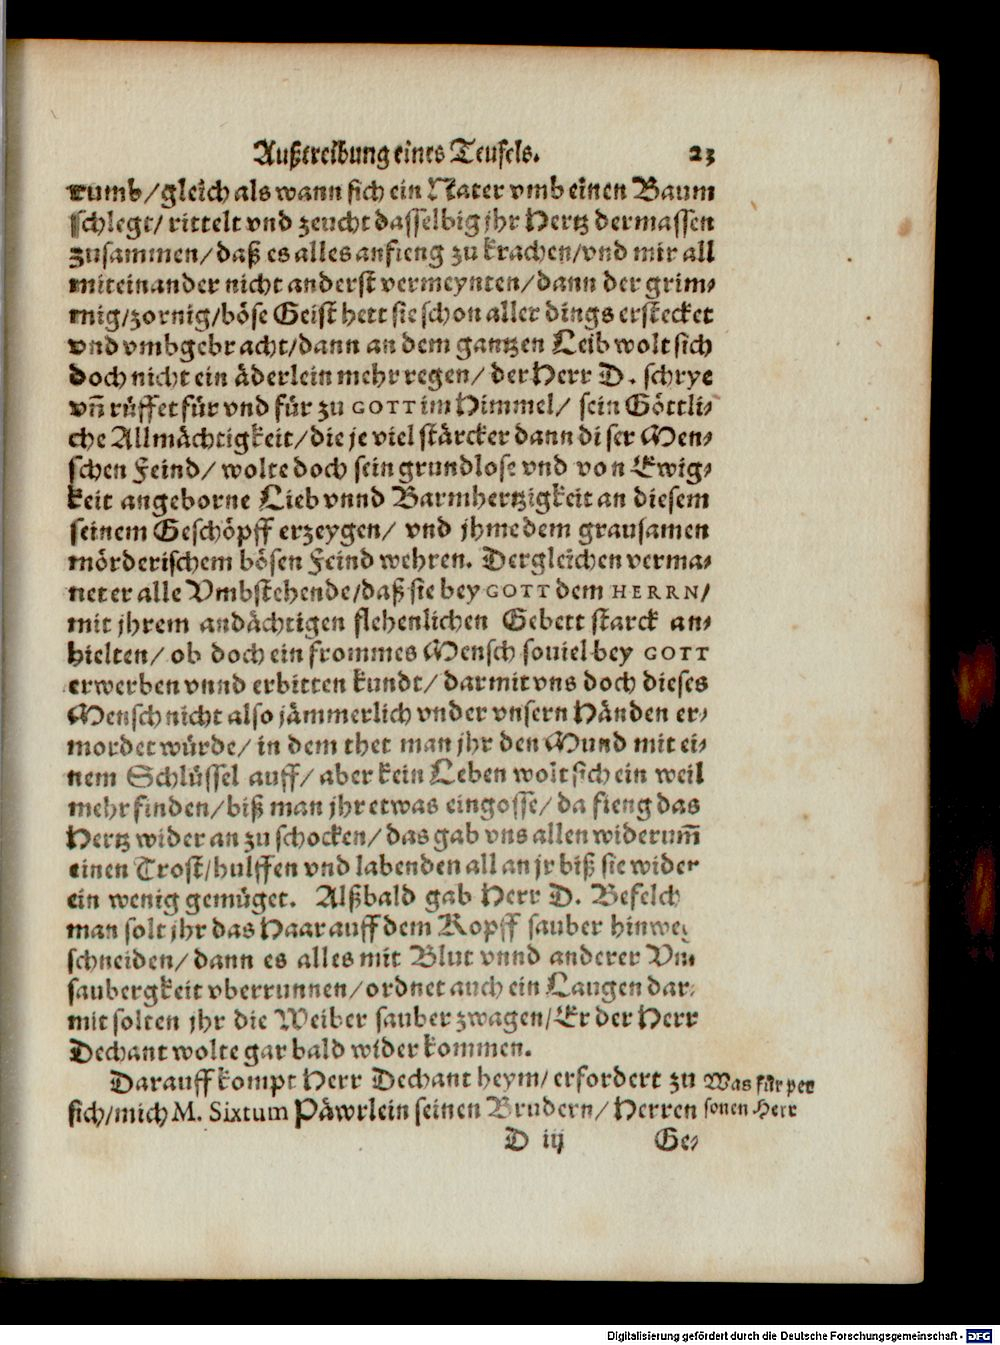 Außtreibung eines Teufels. 23
rumb/gleich als wann sich ein Nater vmb einen Baum
schlegt/ rittelt vnd zeucht dasselbig jhr Hertz dermassen
zusammen/daß es alles anfieng zu krachen/vnd mir all
miteinander nicht anderst vermeynten/dann der grim⸗
mig/zornig/böse Geist hett sie schon aller dings erstecket
vnd vmbgebracht/dann an dem gantzen Leib wolt sich
doch nicht ein äderlein mehr regen/ der Herr D. schrye
vn̄ rüffet für vnd für zu GOTT im Himmel/ sein Göttli⸗
che Allmächtigkeit/die je viel stärcker dann diser Men⸗
schen Feind/ wolte doch sein grundlose vnd von Ewig⸗
keit angeborne Lieb vnnd Barmhertzigkeit an diesem
seinem Geschöpff erzeygen/ vnd jhme dem grausamen
mörderischem bösen Feind wehren. Dergleichen verma⸗
net er alle Vmbstehende/daß sie bey GOTT dem HERRN/
mit jhrem andächtigen flehenlichen Gebett starck an⸗
hielten/ ob doch ein frommes Mensch souiel bey GOTT
erwerben vnnd erbitten kundt/ darmit vns doch dieses
Mensch nicht also jämmerlich vnder vnsern Händen er⸗
mordet würde/ in dem thet man jhr den Mund mit ei⸗
nem Schlüssel auff/ aber kein Leben wolt sich ein weil
mehr finden/biß man jhr etwas eingosse/da fieng das
Hertz wider an zu schocken/das gab vns allen widerum̄
einen Trost/hulffen vnd labenden all an jr biß sie wider
ein wenig gemüget. Alßbald gab Herr D. Befelch
man solt jhr das Haar auff dem Kopff sauber hinweg
schneiden/dann es alles mit Blut vnnd anderer Vn⸗
saubergkeit vberrunnen/ordnet auch ein Laugen dar⸗
mit solten jhr die Weiber sauber zwagen/Er der Herr
Dechant wolte gar bald wider kommen.
Darauff kompt Herr Dechant heym/ erfordert zu
sich/mich M. Sixtum Päwrlein seinen Brudern/ Herren
Was für per
sonen Herr
D iij Ge⸗
Digitalisierung gefördert durch die Deutsche Forschungsgemeinschaft - DFG